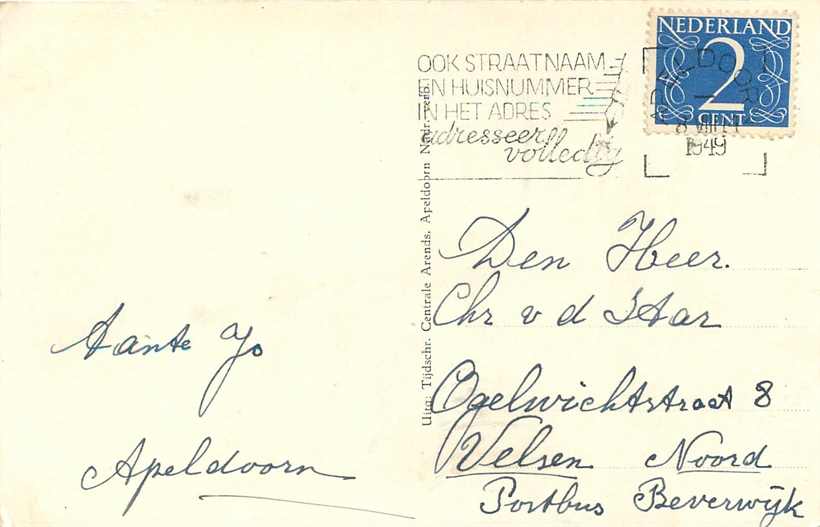 OOK STRAATNAAM
EN HUISNUMMER
IN HET ADRES
adresseer
volledig
NEDERLAND
2
CENT
APELDOORN
1949
Uitg: Tijdschr. Centrale Arends. Apeldoorn Nadr. verb.
Den Heer.
Chr v d Haar
Ogelwichtstraat 8
Velsen Noord
Postbus Beverwijk
Tante Jo
Apeldoorn